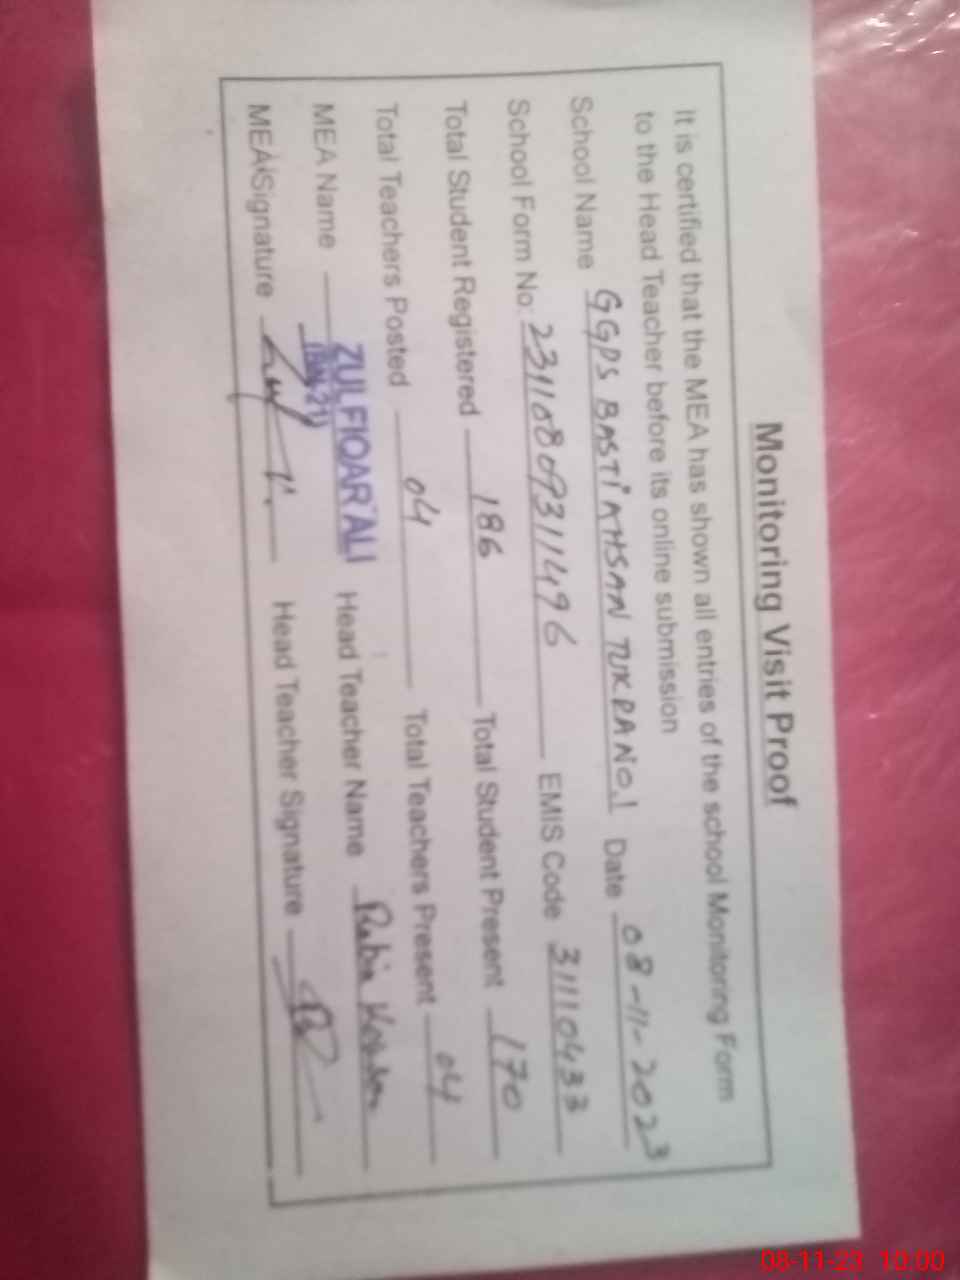 Monitoring Visit Proof
It is certified that the MEA has shown all entries of the school Monitoring Form
to the Head Teacher before its online submission
School Name GGPS BASTI AHSAN TUKRA NO.1 Date 08-11-2023
School Form No: 23110809311496 EMIS Code 31110433
Total Student Registered 186 Total Student Present 170
Total Teachers Posted 04 Total Teachers Present 04
MEA Name ZULFIQAR ALI Head Teacher Name Rubia
MEA Signature Head Teacher Signature
08-11-23 10:00